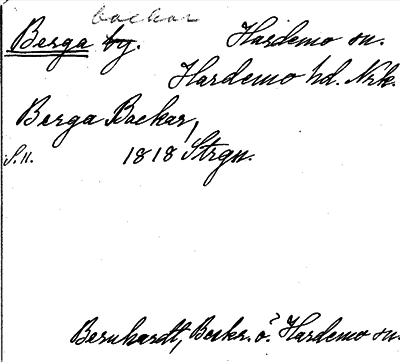 backar
Berga by. Hardemo sn.
Hardemo hd. Nrk.
Berga Backar,
S. 11. 1818 Strgn.
Bernhardt, Beskr. ö. Hardemo sn.